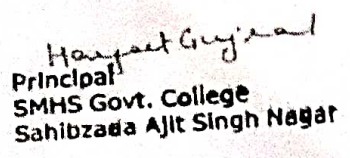 Harpreet Gujral
Principal
SMHS Govt. College
Sahibzada Ajit Singh Nagar